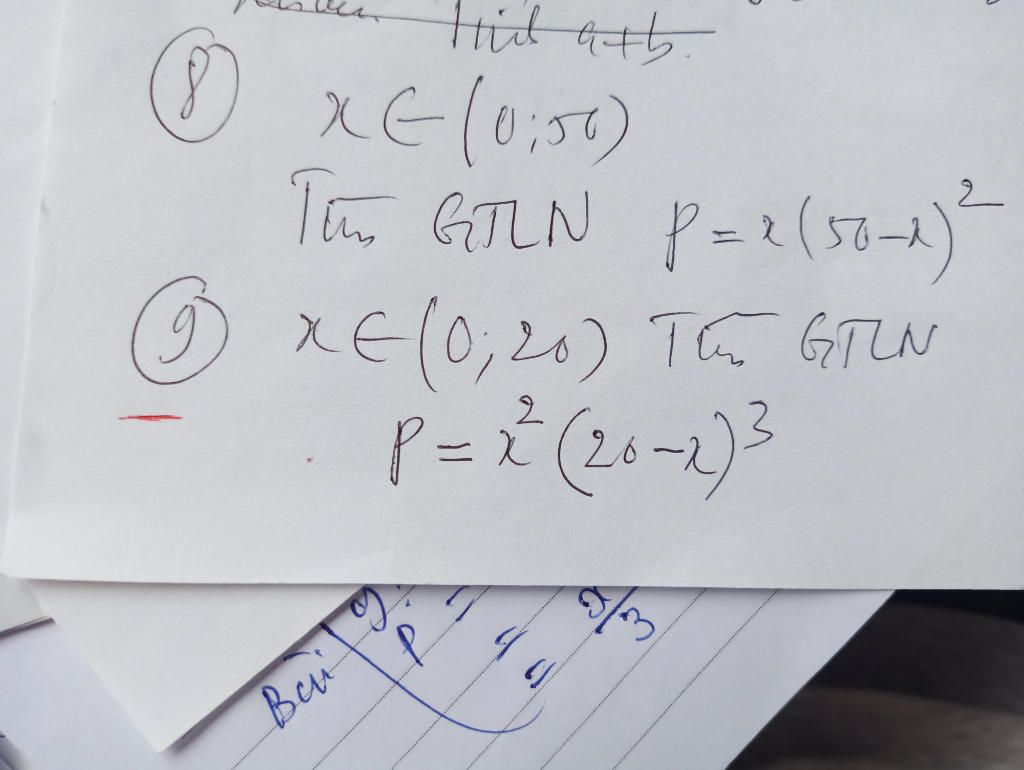 Tính a+b.
⑧ x ∈ (0;50)
Tìm GTLN P = x(50-x)²
⑨ x ∈ (0;20) Tìm GTLN
P = x²(20-x)³
Bài 9:
P =
=
= x/3